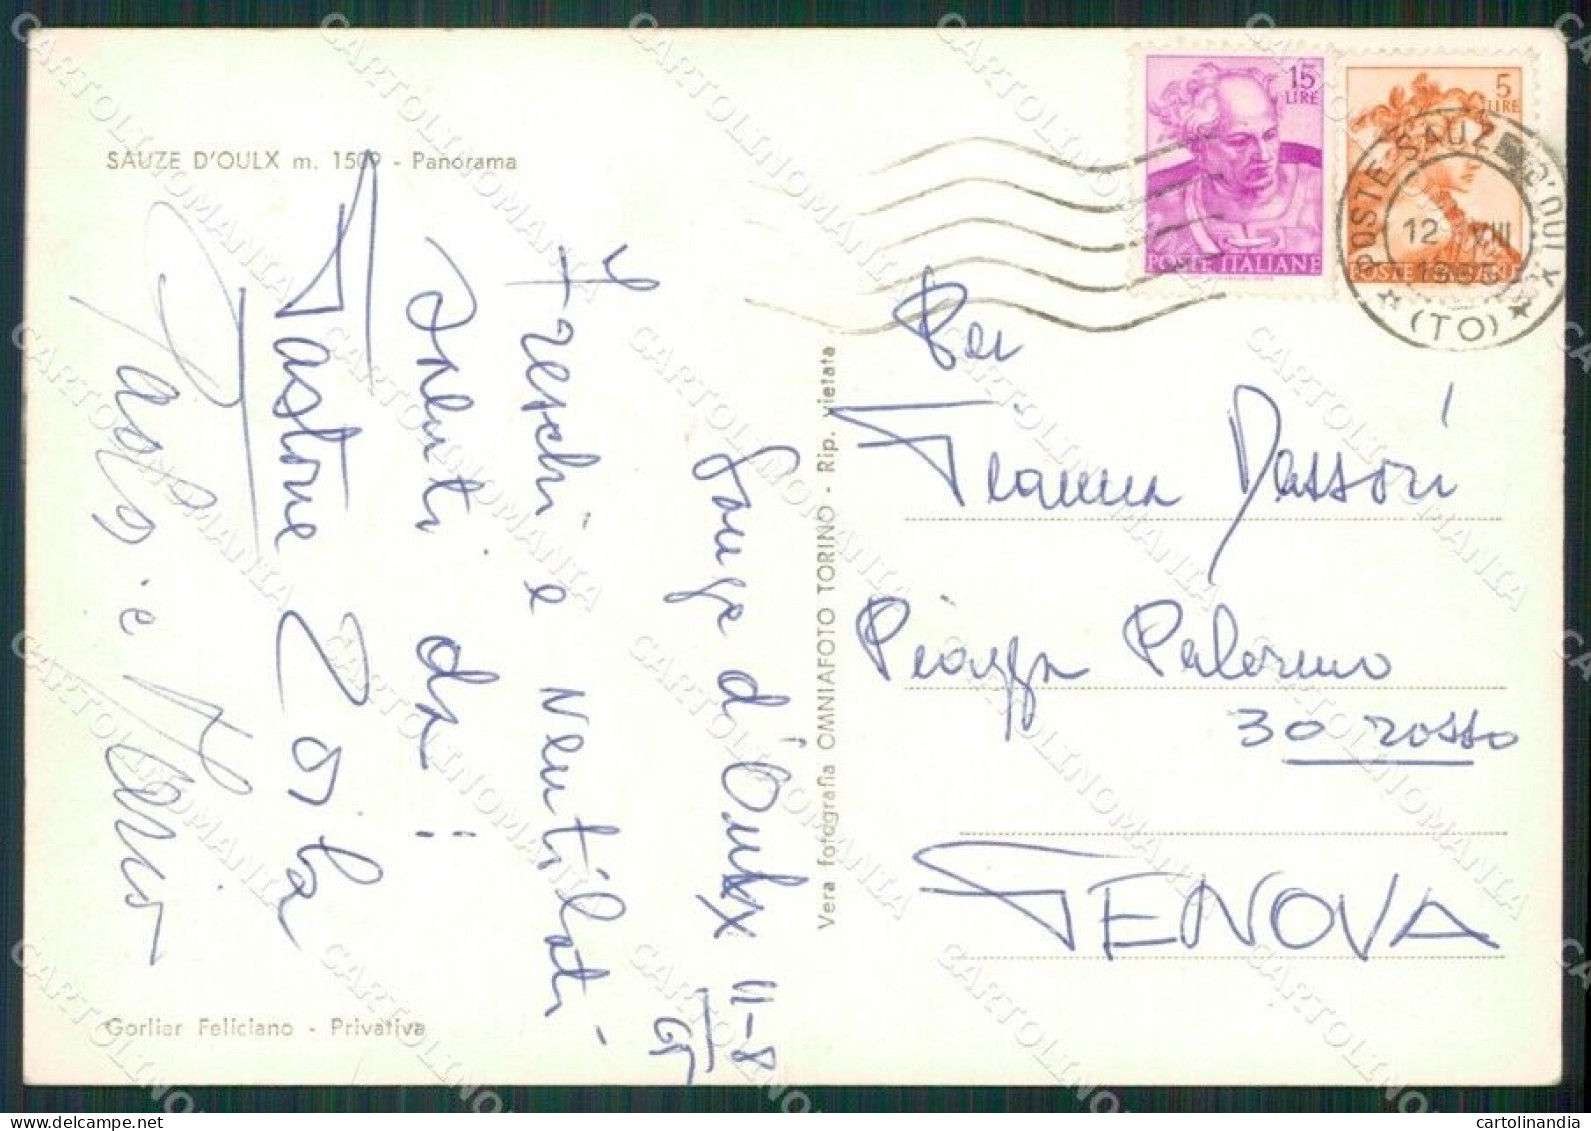 SAUZE D'OULX m. 1509 - Panorama
15
LIRE
POSTE ITALIANE
5
LIRE
POSTE SAUZE D'OULX
12 VIII
1965
(TO)
Sauze d'Oulx 11-8
65
Freschi e ventilati
saluti da
Gastone Zoila
Paolo e
Per
Gianna Dassori
Piazza Palermo
30 rosso
GENOVA
Vera fotografia OMNIAFOTO TORINO - Rip. vietata
Gorlier Feliciano - Privativa
CARTOLINOMANIA
cartolinandia